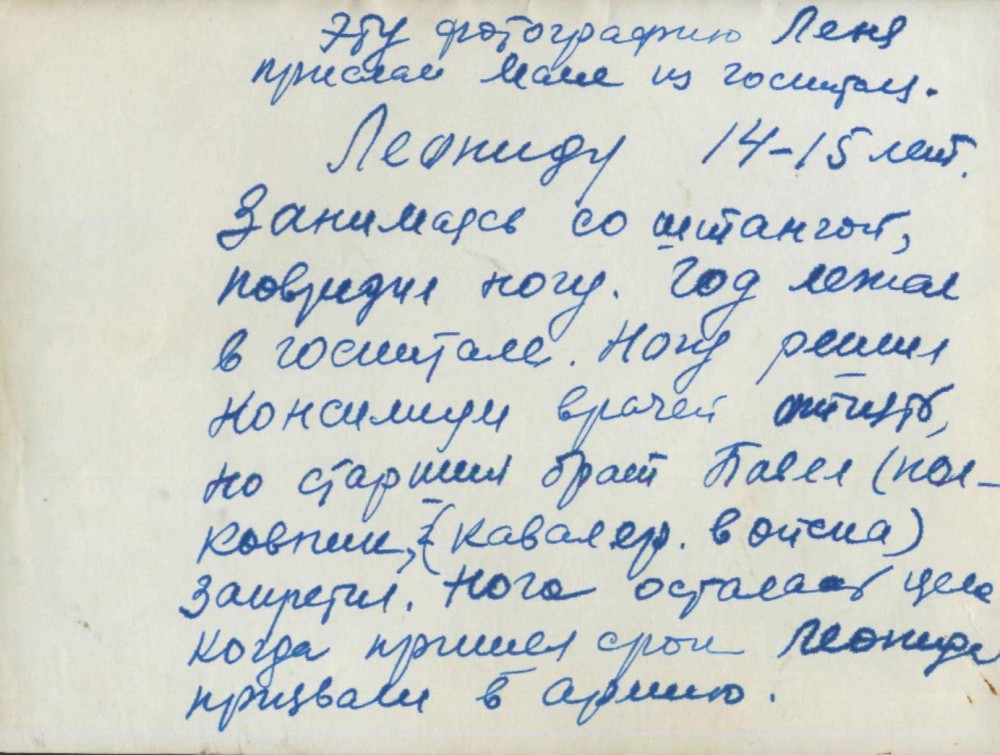 Эту фотографию Леня
прислал маме из госпиталя.
Леониду 14-15 лет.
Занимаясь со штангой,
повредил ногу. Год лежал
в госпитале. Ногу решил
консилиум врачей отнять,
но старший брат Павел (пол-
ковник, (кавалер. войска)
запретил. Нога осталась цела
Когда пришел срок Леонида
призвали в армию.